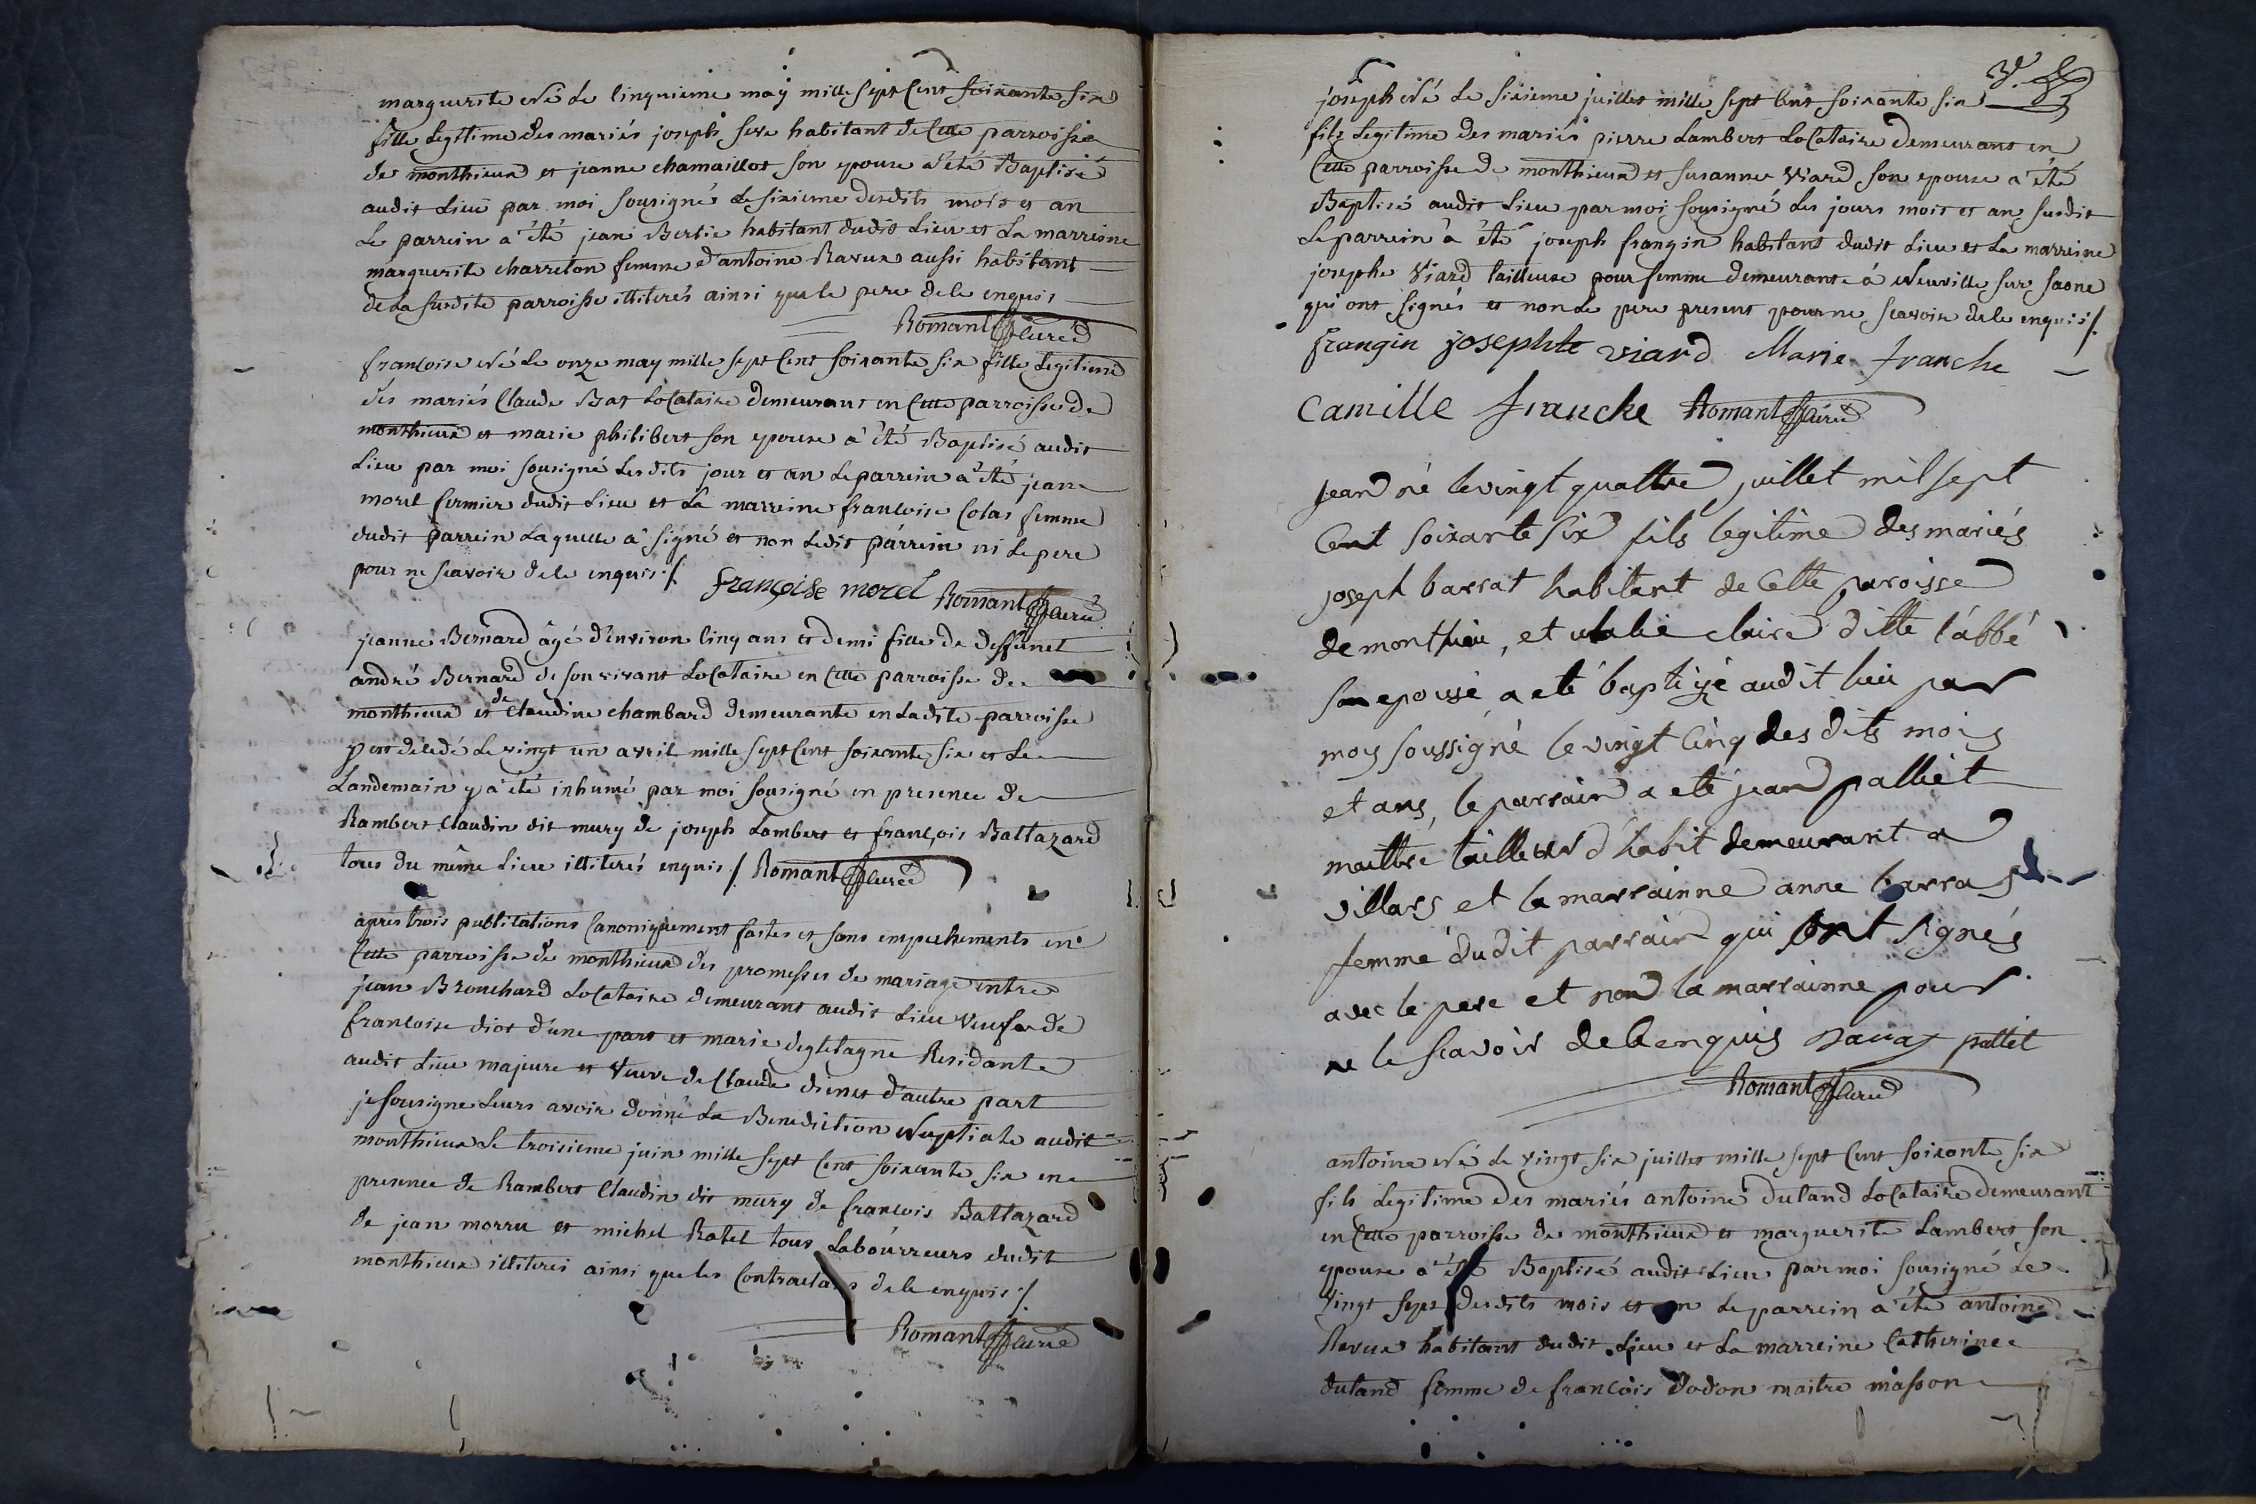 marguerite née le cinquieme may mille sept cent soixante six
fille legitime des mariés joseph serve habitant de cette parroisse
de monthieux et jeanne chamaillot son epouse a été Baptisé
audit Lieu par moi sousigné le sixieme desdits mois et an
Le parrein a été jean Bertie habitant dudit Lieu et La marreine
marguerite charreton femme d'antoine Ravux aussi habitant
de La susdite parroisse illiterés ainsi que le pere de le enquis
Romant curé
francoise né Le onze may mille sept cent soixante six fille Legitime
des mariés Claude Bat Locataire demeurant en cette parroisse de
monthieux et marie philibert son epouse a été Baptisé audit
Lieu par moi sousigné Lesdits jour et an Le parrein a été jean
morel fermier dudit Lieu et La marreine francoise Colas femme
dudit parrein Laquelle a signé et non Ledit parrein ni Le pere
pour ne scavoir de le enquis ./.
françoise morel Romant curé
jeanne Bernard âgé d'environ cinq ans et demi fille de deffunct
andré Bernard de son vivant Locataire en cette parroisse de
monthieux et de Claudine chambard demeurante en Ladite parroisse
y est décedé Le vingt un avril mille sept cent soixante six et Le
Landemain y a été inhumé par moi sousigné en presence de
Rambert Claudin dit mury de joseph Lambert et françois Baltazard
tous du même Lieu illiterés enquis ./. Romant curé
apres trois publications Canoniquement faites et sans empechements en
cette parroisse de monthieux des promesses de mariage entre
jean Brouchard Locataire demeurant audit Lieu Veuf de
francoise diot d'une part et marie degletagne Residante
audit Lieu majure et Veuve de Claude dienet d'autre part
je sousigne Leurs avoir donné La Benediction Nuptiale audit
monthieux Le troisieme juin mille sept cent soixante six en
presence de Rambert Claudin dit mury de francois Baltazard
de jean morru et michel Ratel tous Labourreurs dudit
monthieux illiterés ainsi que les Contractans de le enquis ./.
Romant curé
joseph Né Le sixieme juillet mille sept cent soixante six
fils Legitime des mariés pierre Lambert Locataire demeurant en
cette parroisse de monthieux et susanne Viard son epouse a été
Baptisé audit Lieu par moi sousigné Les jours mois et an susdit
Le parrein a été joseph frangin habitant dudit Lieu et La marreine
josephe Viard tailleuse pour femme demeurante á Neuville sur saone
qui ont signés et non Le pere present pour ne scavoir de le enquis ./.
frangin josephte viard Marie franche
camille franche Romant curé
jean né le vingt quattre juillet mil sept
cent soixante six fils legitime des mariés
joseph barrat habitant de cette paroisse
de monthieu, et claire ditte l'abbé
son epouse a eté baptizé audit lieu par
moy soussigné le vingt cinq des dits mois
et ans, le parrain a eté jean palliet
maittre tailleur d'habit demeurant a
villars et la marrainne anne barra
femme dudit parrain qui ont signés
avec le pere et non la marrainne pour
ne le scavoir de le enquis pallet
Romant curé
antoine Né Le vingt six juillet mille sept cent soixante six
fils Legitime des mariés antoine duland Locataire demeurant
en cette parroisse de monthieux et marguerite Lambert son
epouse a été Baptisé audit Lieu par moi sousigné Le
vingt sept desdits mois et an Le parrein a été antoine
Ravux habitant dudit Lieu et La marreine Catherine
duland femme de francois dodon maitre masson